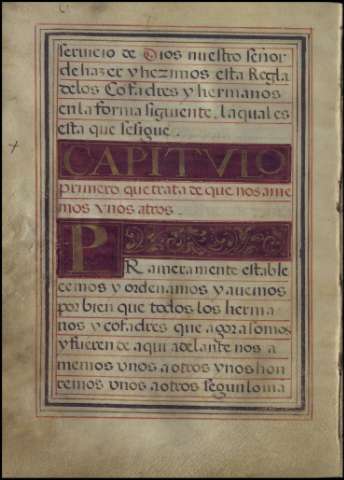 seruicio de Dios nuestro señor
de hazer y hezimos esta Regla
delos Cofadres y hermanos
en la forma siguiente, la qual es
esta que sesigue.
CAPITVLO
primero que trata de que nos ame
mos vnos a tros.
P
Rameramente estable
cemos y ordenamos y auemos
por bien que todos los herma
nos y cofadres que agora somos
y fueren de aqui adelante nos a
memos vnos a otros y nos hon
remos vnos a otros segun loma